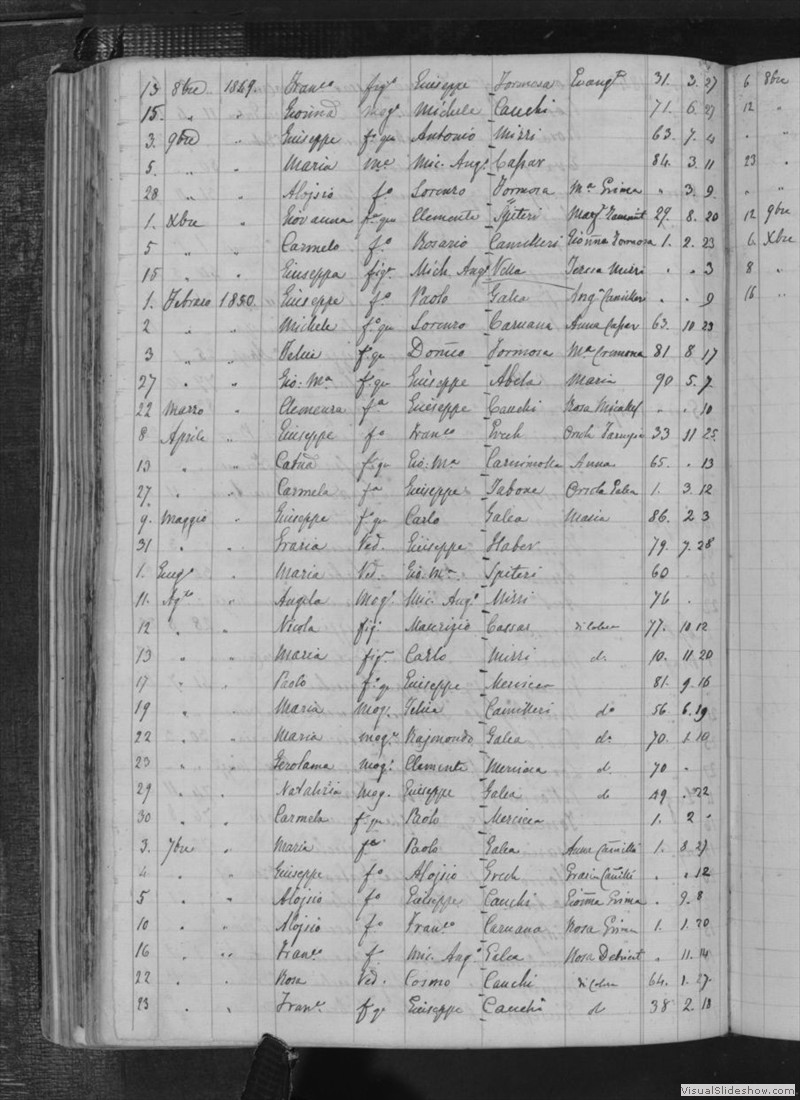 13 8bre 1849. Fran.co fig.o Giuseppe Formosa Evang.a 31. 3. 27
15. " " Gionna mog.e Michele Cauchi 71. 6. 27
3. 9bre " Giuseppe f.o qu Antonio Mizzi 63. 7. 4
5. " " Maria Mic. Ang.o Caspar 84. 3. 11
28 " " Aloisio f.o Lorenzo Formosa M.a Grima " 3. 9.
1. Xbre " Giovanna qu Clemente Spiteri 29. 8. 20
5 " " Carmelo f.o Rosario Camilleri Gionna Formosa 1. 2. 23
15 " " Giuseppa fig.a Mich. Ang.o Vella Teresa Mizzi " " 3
1. Febraro 1850. Giuseppe f.o Paolo Galea Ang.a Camilleri . . 9
2 " " Michele f.o qu Lorenzo Caruana Anna Caspar 63. 10 23
3 " " Felice f.o qu Dom.co Formosa M.a Cremona 81 8. 17
27 " " Gio: M.a f.o qu Giuseppe Abela Maria 90 5. 7.
22 Marzo " f.a Giuseppe Cauchi Rosa Micallef . . 10
8 Aprile " Giuseppe f.o Fran.co Grech Farrugia 33 11 25
13 " " Cat.na qu Gio: M.a Anna 65. . 13
27 " " Carmela f.a Giuseppe Tabone Orsola Galea 1. 3. 12
9. Maggio " Giuseppe f.o qu Carlo Galea Maria 86. 2 3
31 " " Grazia Ved. Giuseppe Haber 79. 7. 28
1. Giug.o " Maria Ved. Gio. M.a Spiteri 60
11. Ag.to " Angela Mog. Mic. Ang.o Mizzi 76 .
12 " " Nicola fig. Maurizio Cassar di colera 77. 10 12
13 " " Maria fig.a Carlo Mizzi d. 10. 11. 20
17 " " Paolo f.o q. Giuseppe Mercieca 81. 9. 16
19 " " Maria Mog. Felice Camilleri d.o 56 6. 19
22 " " Maria mog.e Rajmondo Galea d.o 70. 1. 10
23 " " Gerolama mog. Clemente Mercieca d. 70 .
29 " " Natalizia Mog. Giuseppe Galea d. 49 . 22
30 " " Carmela qu Paolo Mercieca 1. 2 .
3. 7bre " Maria f.a Paolo Galea Anna Camilleri 1. 8. 27
4 " " Giuseppe f.o Aloisio Grech Grazia Camilleri . . 12
5 " " Aloisio f.o Giuseppe Cauchi Gionna Grima . 9. 8
10 " " Aloisio f.o Fran.co Caruana Rosa Grima 1. 1. 20
16 " " Fran.co f. Mic. Ang.o Galea Rosa . 11. 14
22 " " Rosa Ved. Cosmo Cauchi di colera 64. 1. 27.
23 " " Fran.co f. q. Giuseppe Cauchi d. 38 2. 18
6 8bre
12 "
" "
23 "
" "
12 9bre
6 Xbre
8 "
16 "
VisualSlideshow.com